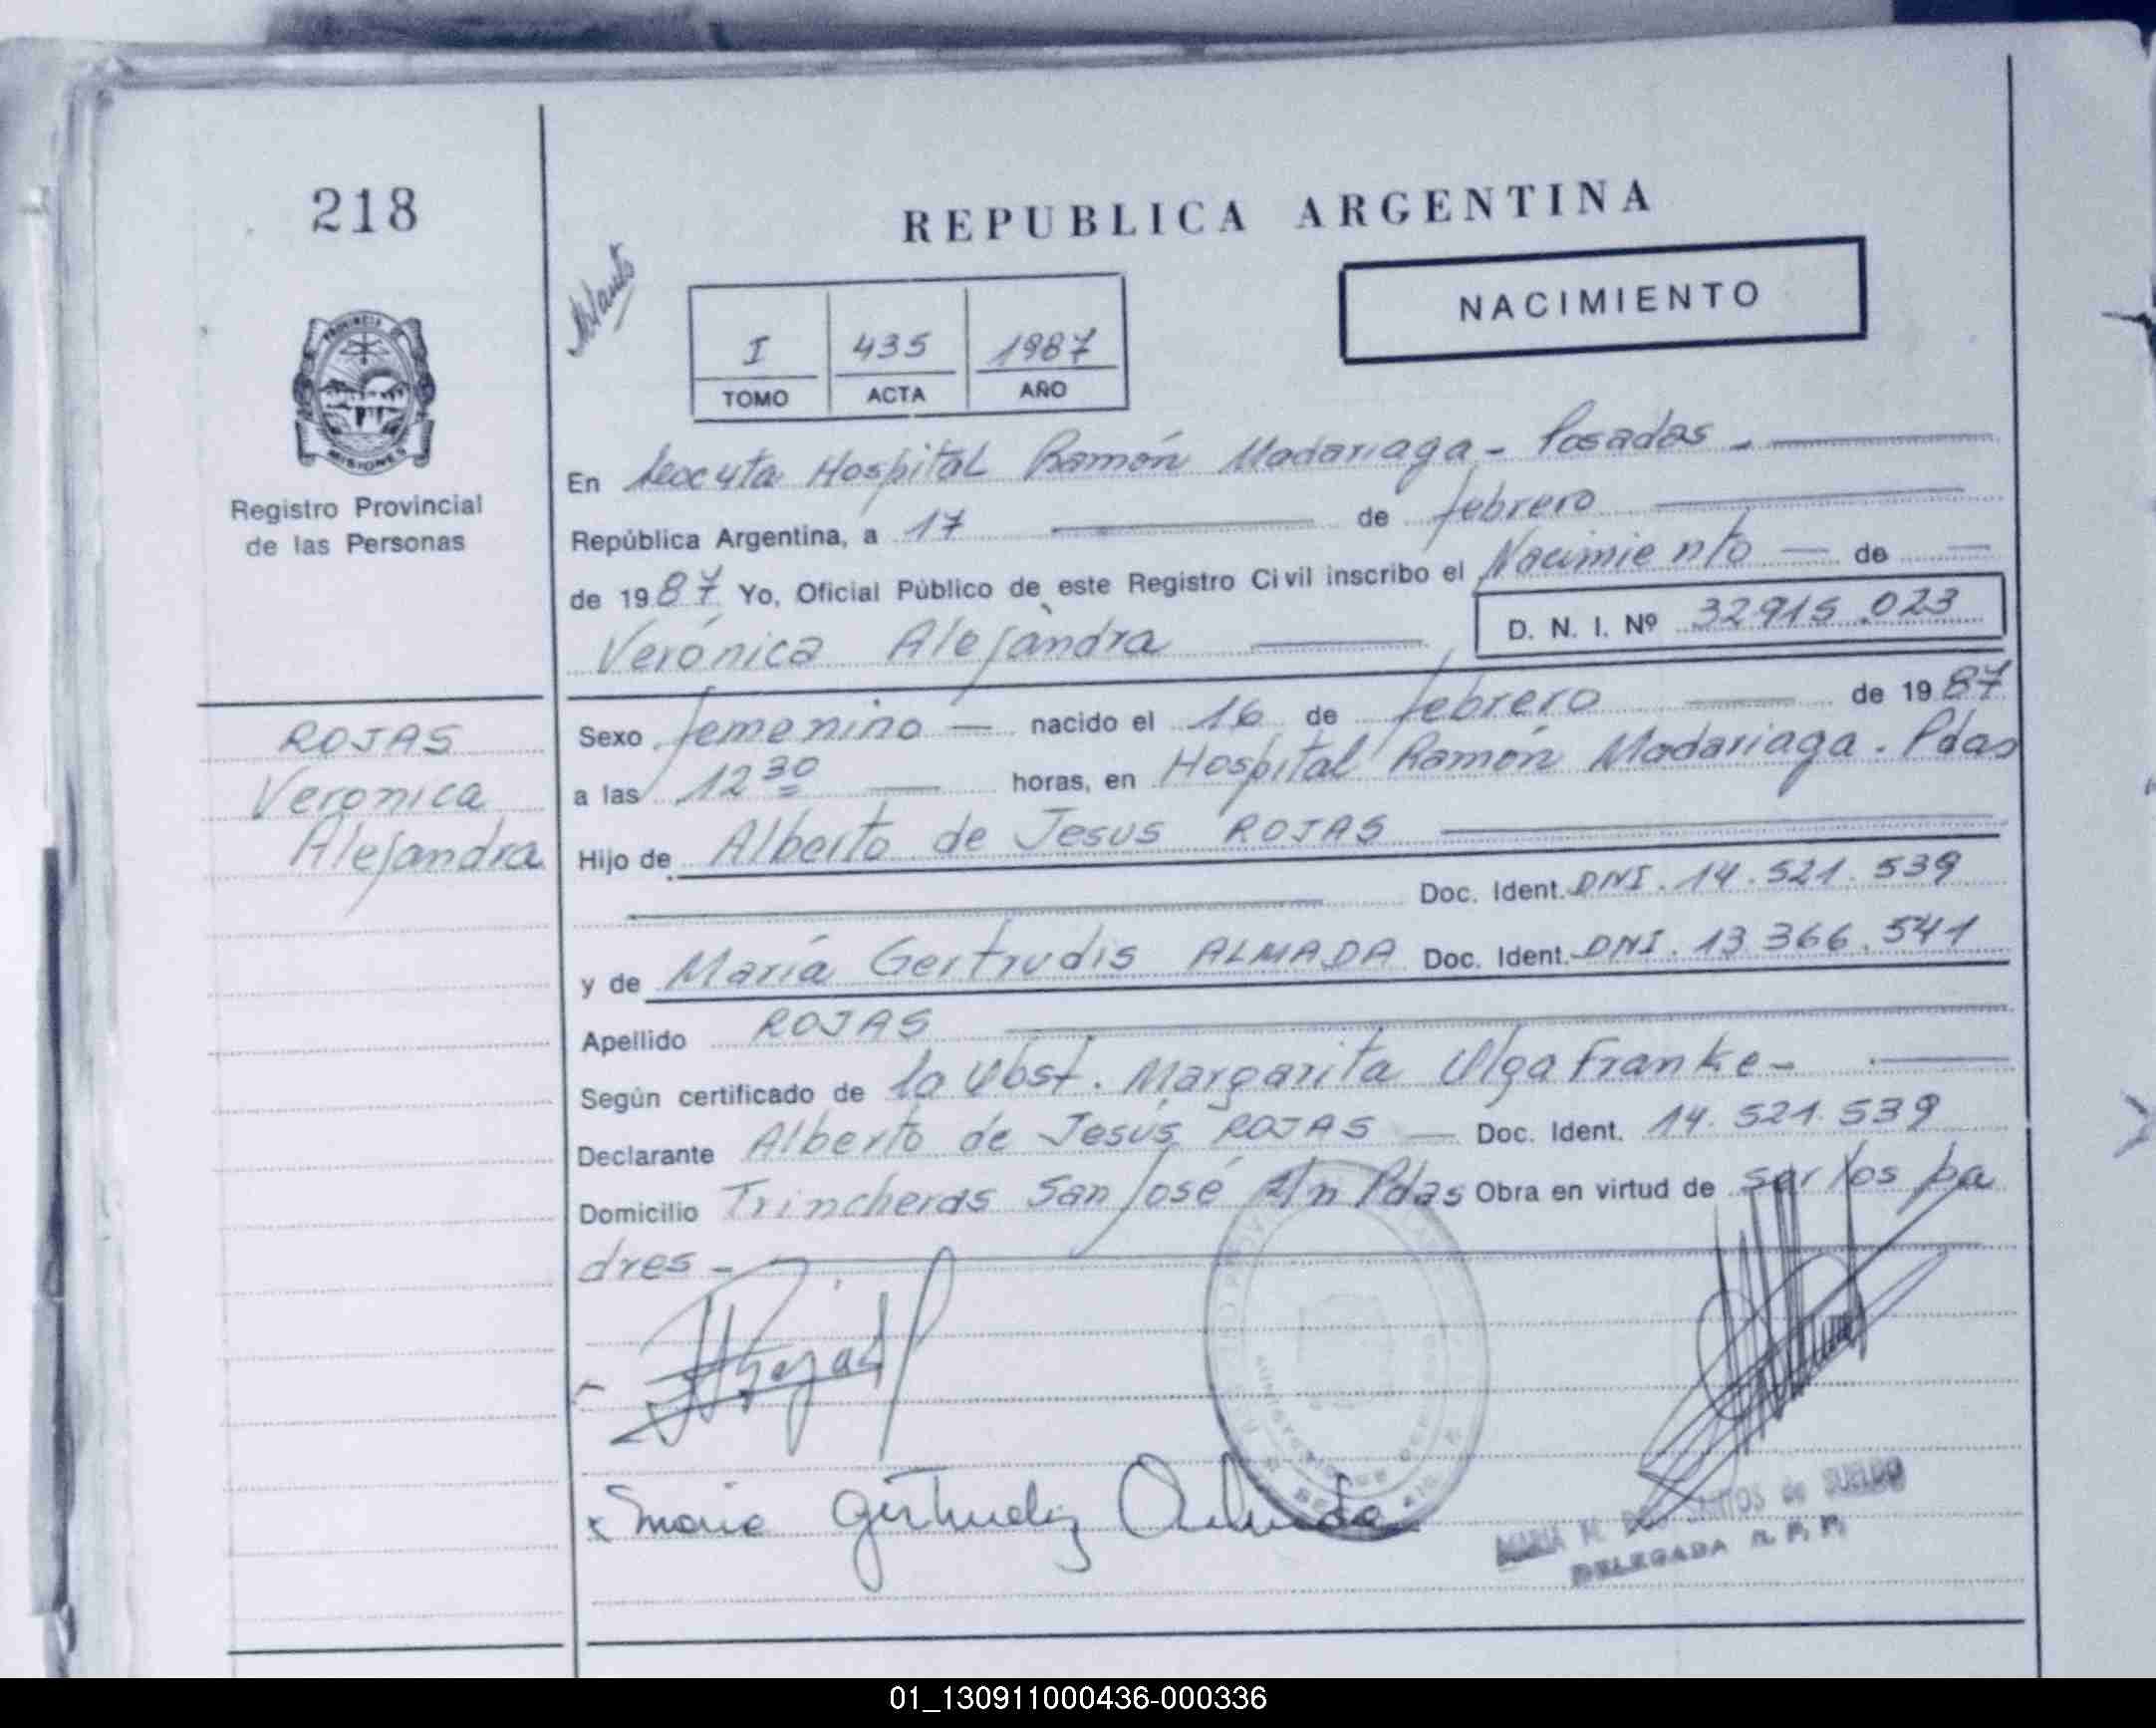 218
REPUBLICA ARGENTINA
NACIMIENTO
I 435 1987
TOMO ACTA AÑO
PROVINCIA DE
MISIONES
Registro Provincial
de las Personas
En Hospital Ramón Madariaga - Posadas -
República Argentina, a 17 de febrero
de 1987 Yo, Oficial Público de este Registro Civil inscribo el Nacimiento de
Verónica Alejandra D. N. I. Nº 32915.023
ROJAS
Veronica
Alejandra
Sexo femenino nacido el 16 de febrero de 1987
a las 12 30 horas, en Hospital Ramón Madariaga. Pdas
Hijo de Alberto de Jesus ROJAS
Doc. Ident. DNI. 14.521.539
y de María Gertrudis ALMADA Doc. Ident. DNI. 13.366.541
Apellido ROJAS
Según certificado de la Obst. Margarita Olga Franke-
Declarante Alberto de Jesús ROJAS Doc. Ident. 14.521.539
Domicilio Trincheras San José s/n Pdas Obra en virtud de ser los pa
dres -
Maria Gertrudiz Almada
MARIA DOS SANTOS de SUELDO
DELEGADA R. P. P.
01_130911000436-000336